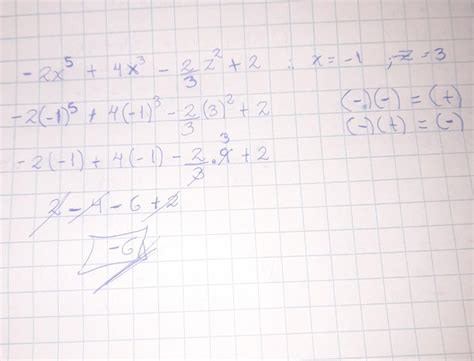 -2x⁵ + 4x³ - 2/3 z² + 2 : x = -1 ; z = 3
-2(-1)⁵ + 4(-1)³ - 2/3 (3)² + 2
(-)(-) = (+)
(-)(+) = (-)
-2(-1) + 4(-1) - 2/3 · 9 3 + 2
2 - 4 - 6 + 2
-6